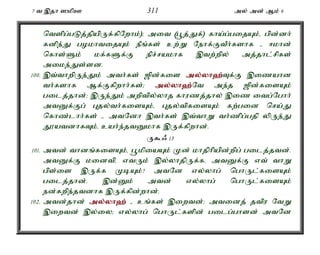 7 வ இதா ஸமிஊ 311 அல் அன் ஆம் 6
வெளிப்படுத்தியிருக்கிறோம்); அவை (பூத்துக்) காய்ப்பதையும், பின்னர்
கனிந்து பழமாவதையும் நீங்கள் உற்று நோக்குவீர்களாக - ஈமான்
கொள்ளும் மக்களுக்கு நிச்சயமாக இவற்றில் அத்தாட்சிகள்
அமைந்துள்ளன.
100. இவ்வாறிருந்தும் அவர்கள் ஜின்களை அல்லாஹ்வுக்கு இணையான
வர்களாக ஆக்குகிறார்கள்; அல்லாஹ்வே அந்த ஜின்களையும்
படைத்தான்; இருந்தும் அறிவில்லாத காரணத்தால் இணை வைப்போர்
அவனுக்குப் புதல்வர்களையும், புதல்விகளையும் கற்பனை செய்து
கொண்டார்கள் - அவனோ இவர்கள் இவ்வாறு வர்ணிப்பதி லிருந்து
தூயவனாகவும், உயர்ந்தவனுமாக இருக்கிறான்.
ருகூஃ 13
101. அவன் வானங்களையும், பூமியையும் முன் மாதிரியின்றிப் படைத்தவன்.
அவனுக்கு மனைவி, எவரும் இல்லாதிருக்க, அவனுக்கு எவ் வாறு
பிள்ளை இருக்க முடியும்? அவனே எல்லாப் பொருட்களையும்
படைத்தான்; இன்னும் அவன் எல்லாப் பொருட்களையும்
நன்கறிந்தவனாக இருக்கின்றான்.
102. அவன்தான் அல்லாஹ் - உங்கள் இறைவன்; அவனைத் தவிர வேறு
இறைவன் இல்லை; எல்லாப் பொருட்களின் படைப்பாளன் அவனே